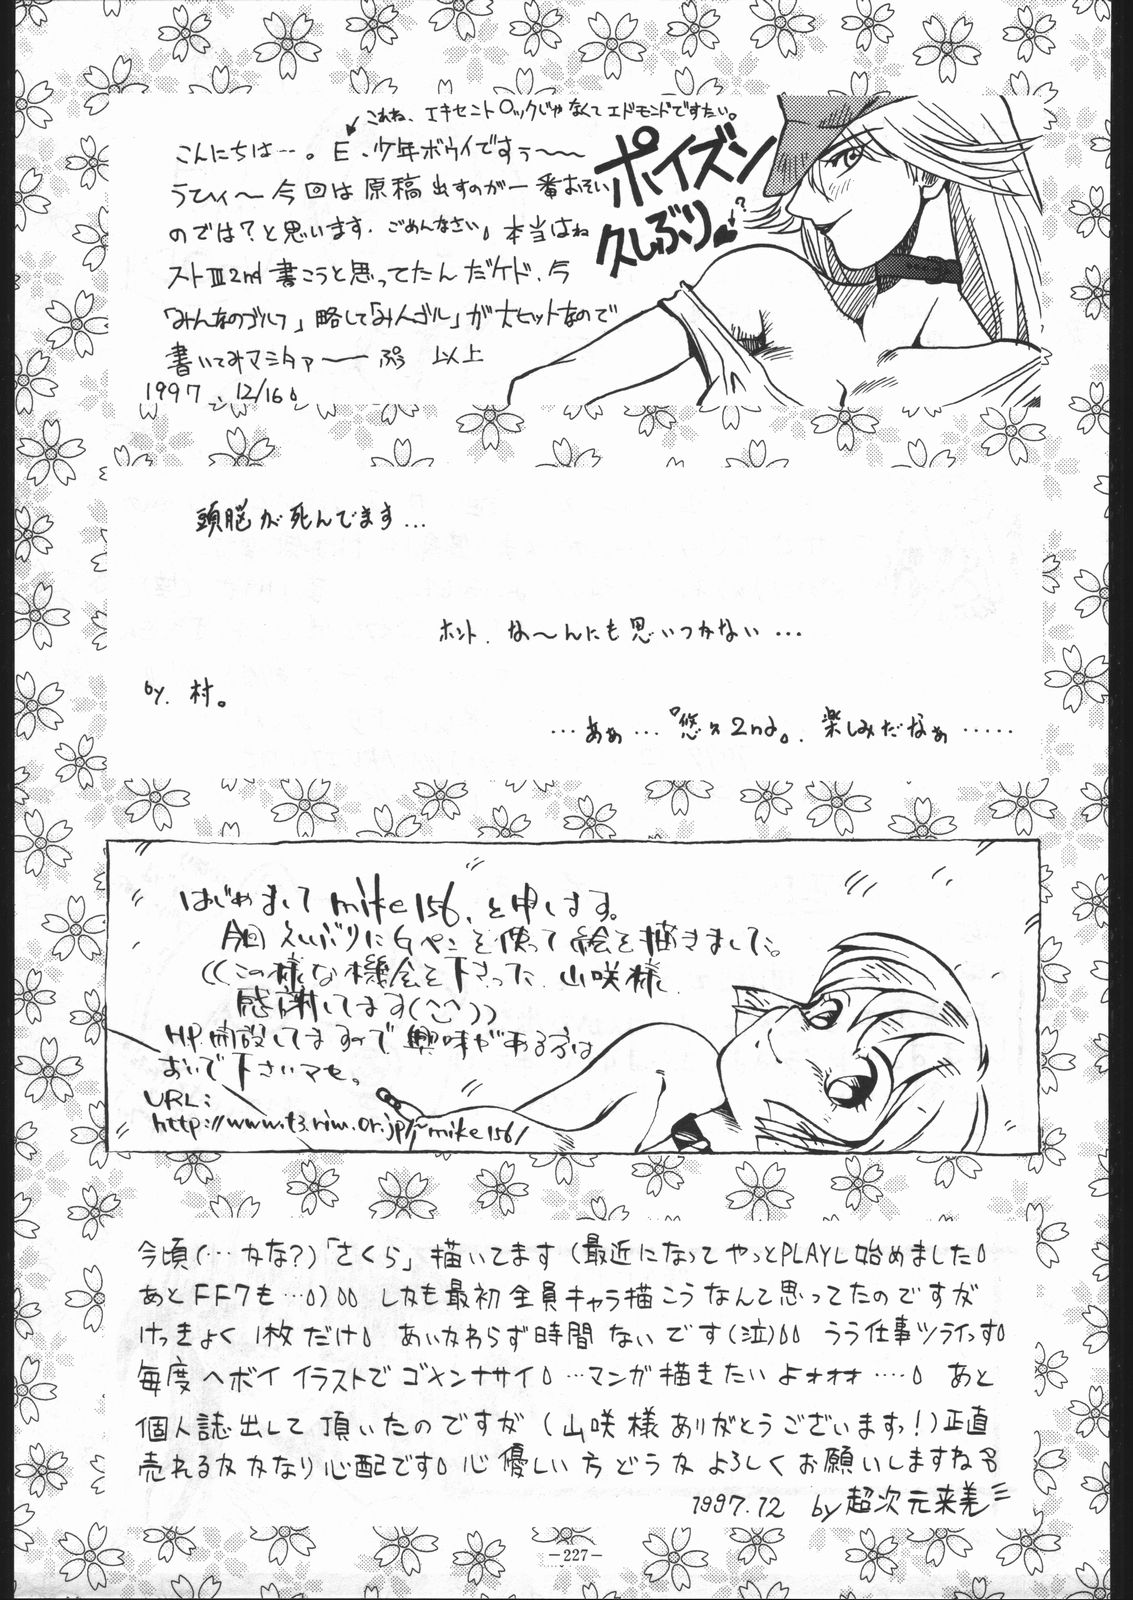 これね、エキセントロックじゃなくてエドモンドですたい。
こんにちは…。E、少年ボウイですぅ〜〜
うひィ〜今回は原稿出すのが一番おそい
のでは?と思います.ごめんなさい。本当はね
ストⅢ2nd書こうと思ってたんだケド、今
「みんなのゴルフ」略して「みんゴル」が大ヒットなので
書いてみマシタァ── ぷぅ 以上
1997、12/16。
ポイズン
久しぶり
頭脳が死んでます…
ホント、な〜んにも思いつかない…
by.村。
…あぁ…『悠久2nd。楽しみだなぁ……
はじめまして mike156、と申します。
今回久しぶりにGペンを使って絵を描きました。
((この様な機会を下さった、山咲様、
感謝してます(^^)))
HP開設してますので、興味がある方は
おいで下さいマセ。
URL:
http://www.t3.rim.or.jp/~mike156/
今頃(…カな?)「さくら」描いてます(最近になってやっとPLAYし始めました。
あとFF7も…。)。。しカも最初全員キャラ描こうなんて思ってたのですが
けっきょく1枚だけ。あいカわらず時間ないです(泣)。。うう仕事ツライっす。
毎度ヘボイイラストでゴメンナサイ。…マンガ描きたいよォォォ…。あと
個人誌出して頂いたのですが(山咲様ありがとうございますっ!)正直
売れるカカなり心配です。心優しい方どうカよろしくお願いしますね
1997.12 by超次元来美
-227-